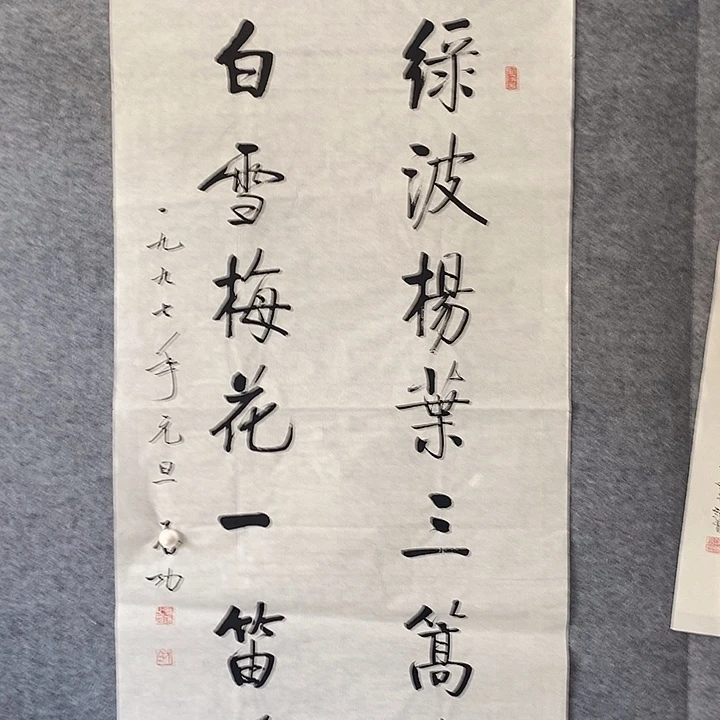 綠波楊葉三篙
白雪梅花一笛
一九九七年元旦 启功